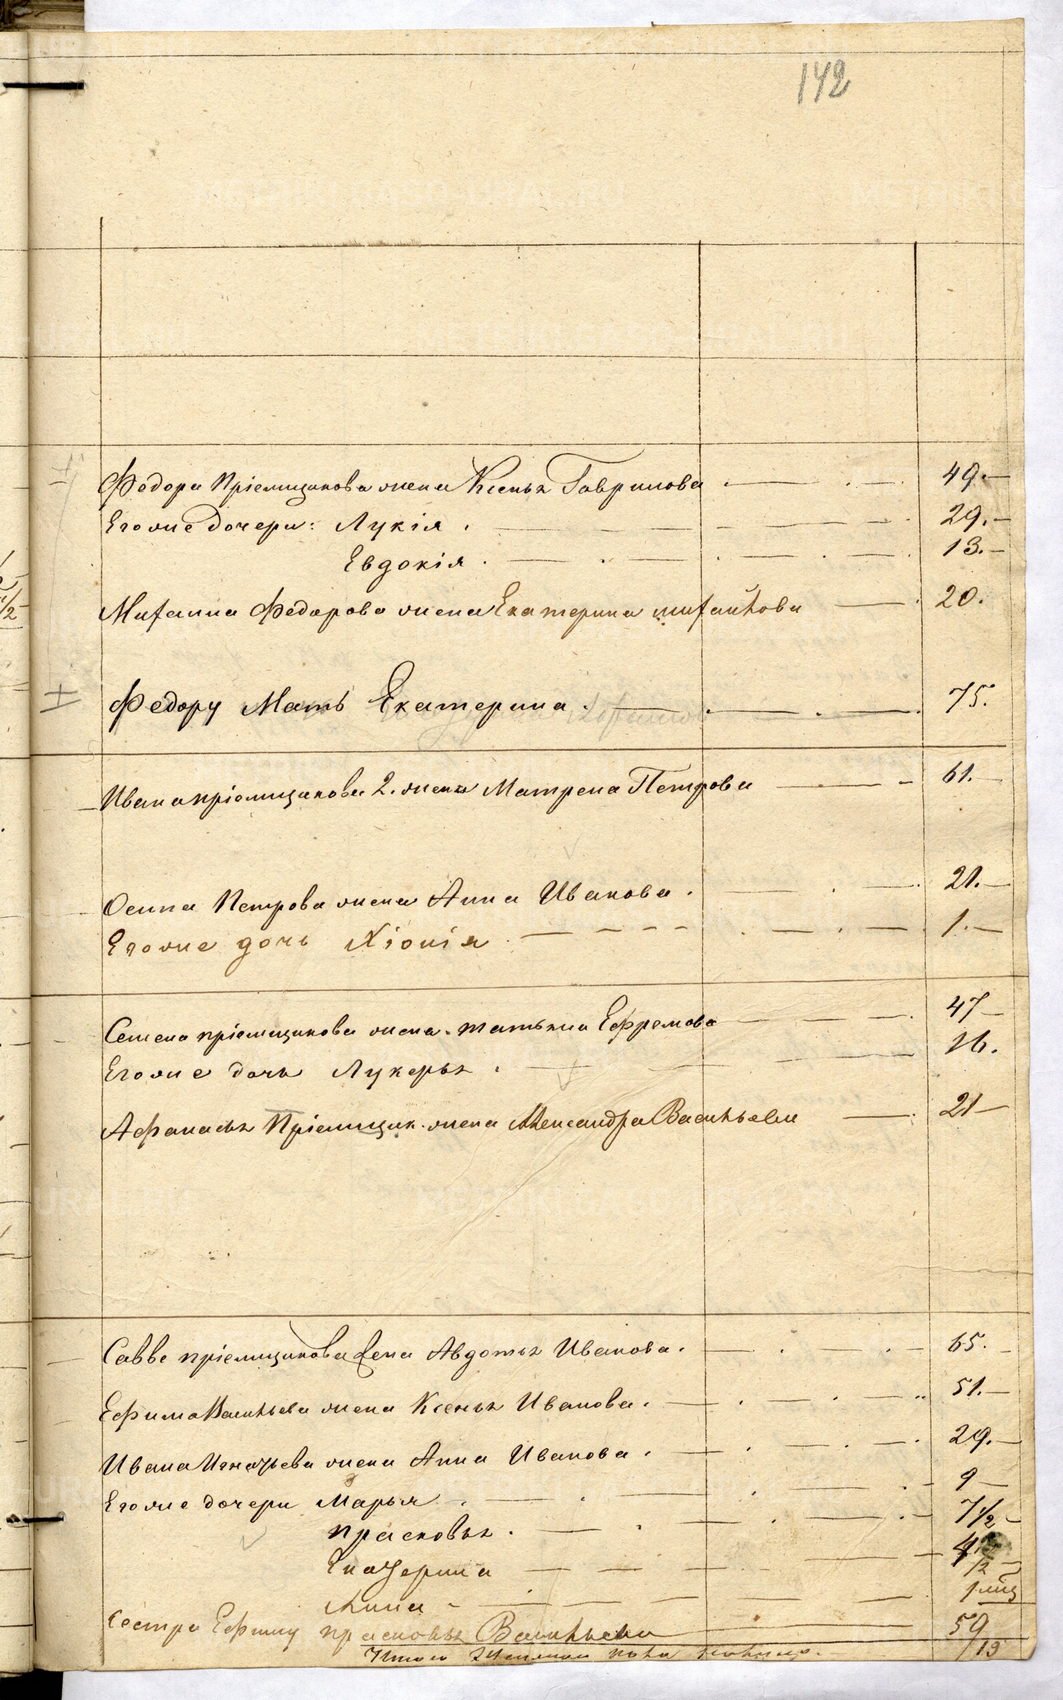 142
Федора Пріемщикова жена Ксенья Гаврилова 49.
Его же дочери: Лукія 29.
Евдокія 13.
Михаила Федорова жена Екатерина михайлова 20.
Федору Мать Екатерина 75.
Ивана пріемщикова 2. жена Матрена Петрова 61.
Осипа Петрова жена Анна Иванова 21.
Его же дочь Хіонія 1.
Семена пріемщикова жена татьяна Ефремова 47
Его же дочь Лукерья 16.
Афанасья Пріемщик. жена Александра Васильева 21
Савве пріемщикова жена Авдотья Иванова. 65.
Ефима Васильева жена Ксенья Иванова. 51.
Ивана Игнатьева жена Анна Иванова 29.
Его же дочери Марья 9
прасковья 7 1/2
Екатерина
Анна 1 мѣс
Сестра Ефиму прасковья Васильева 59
Итого женска пола 19